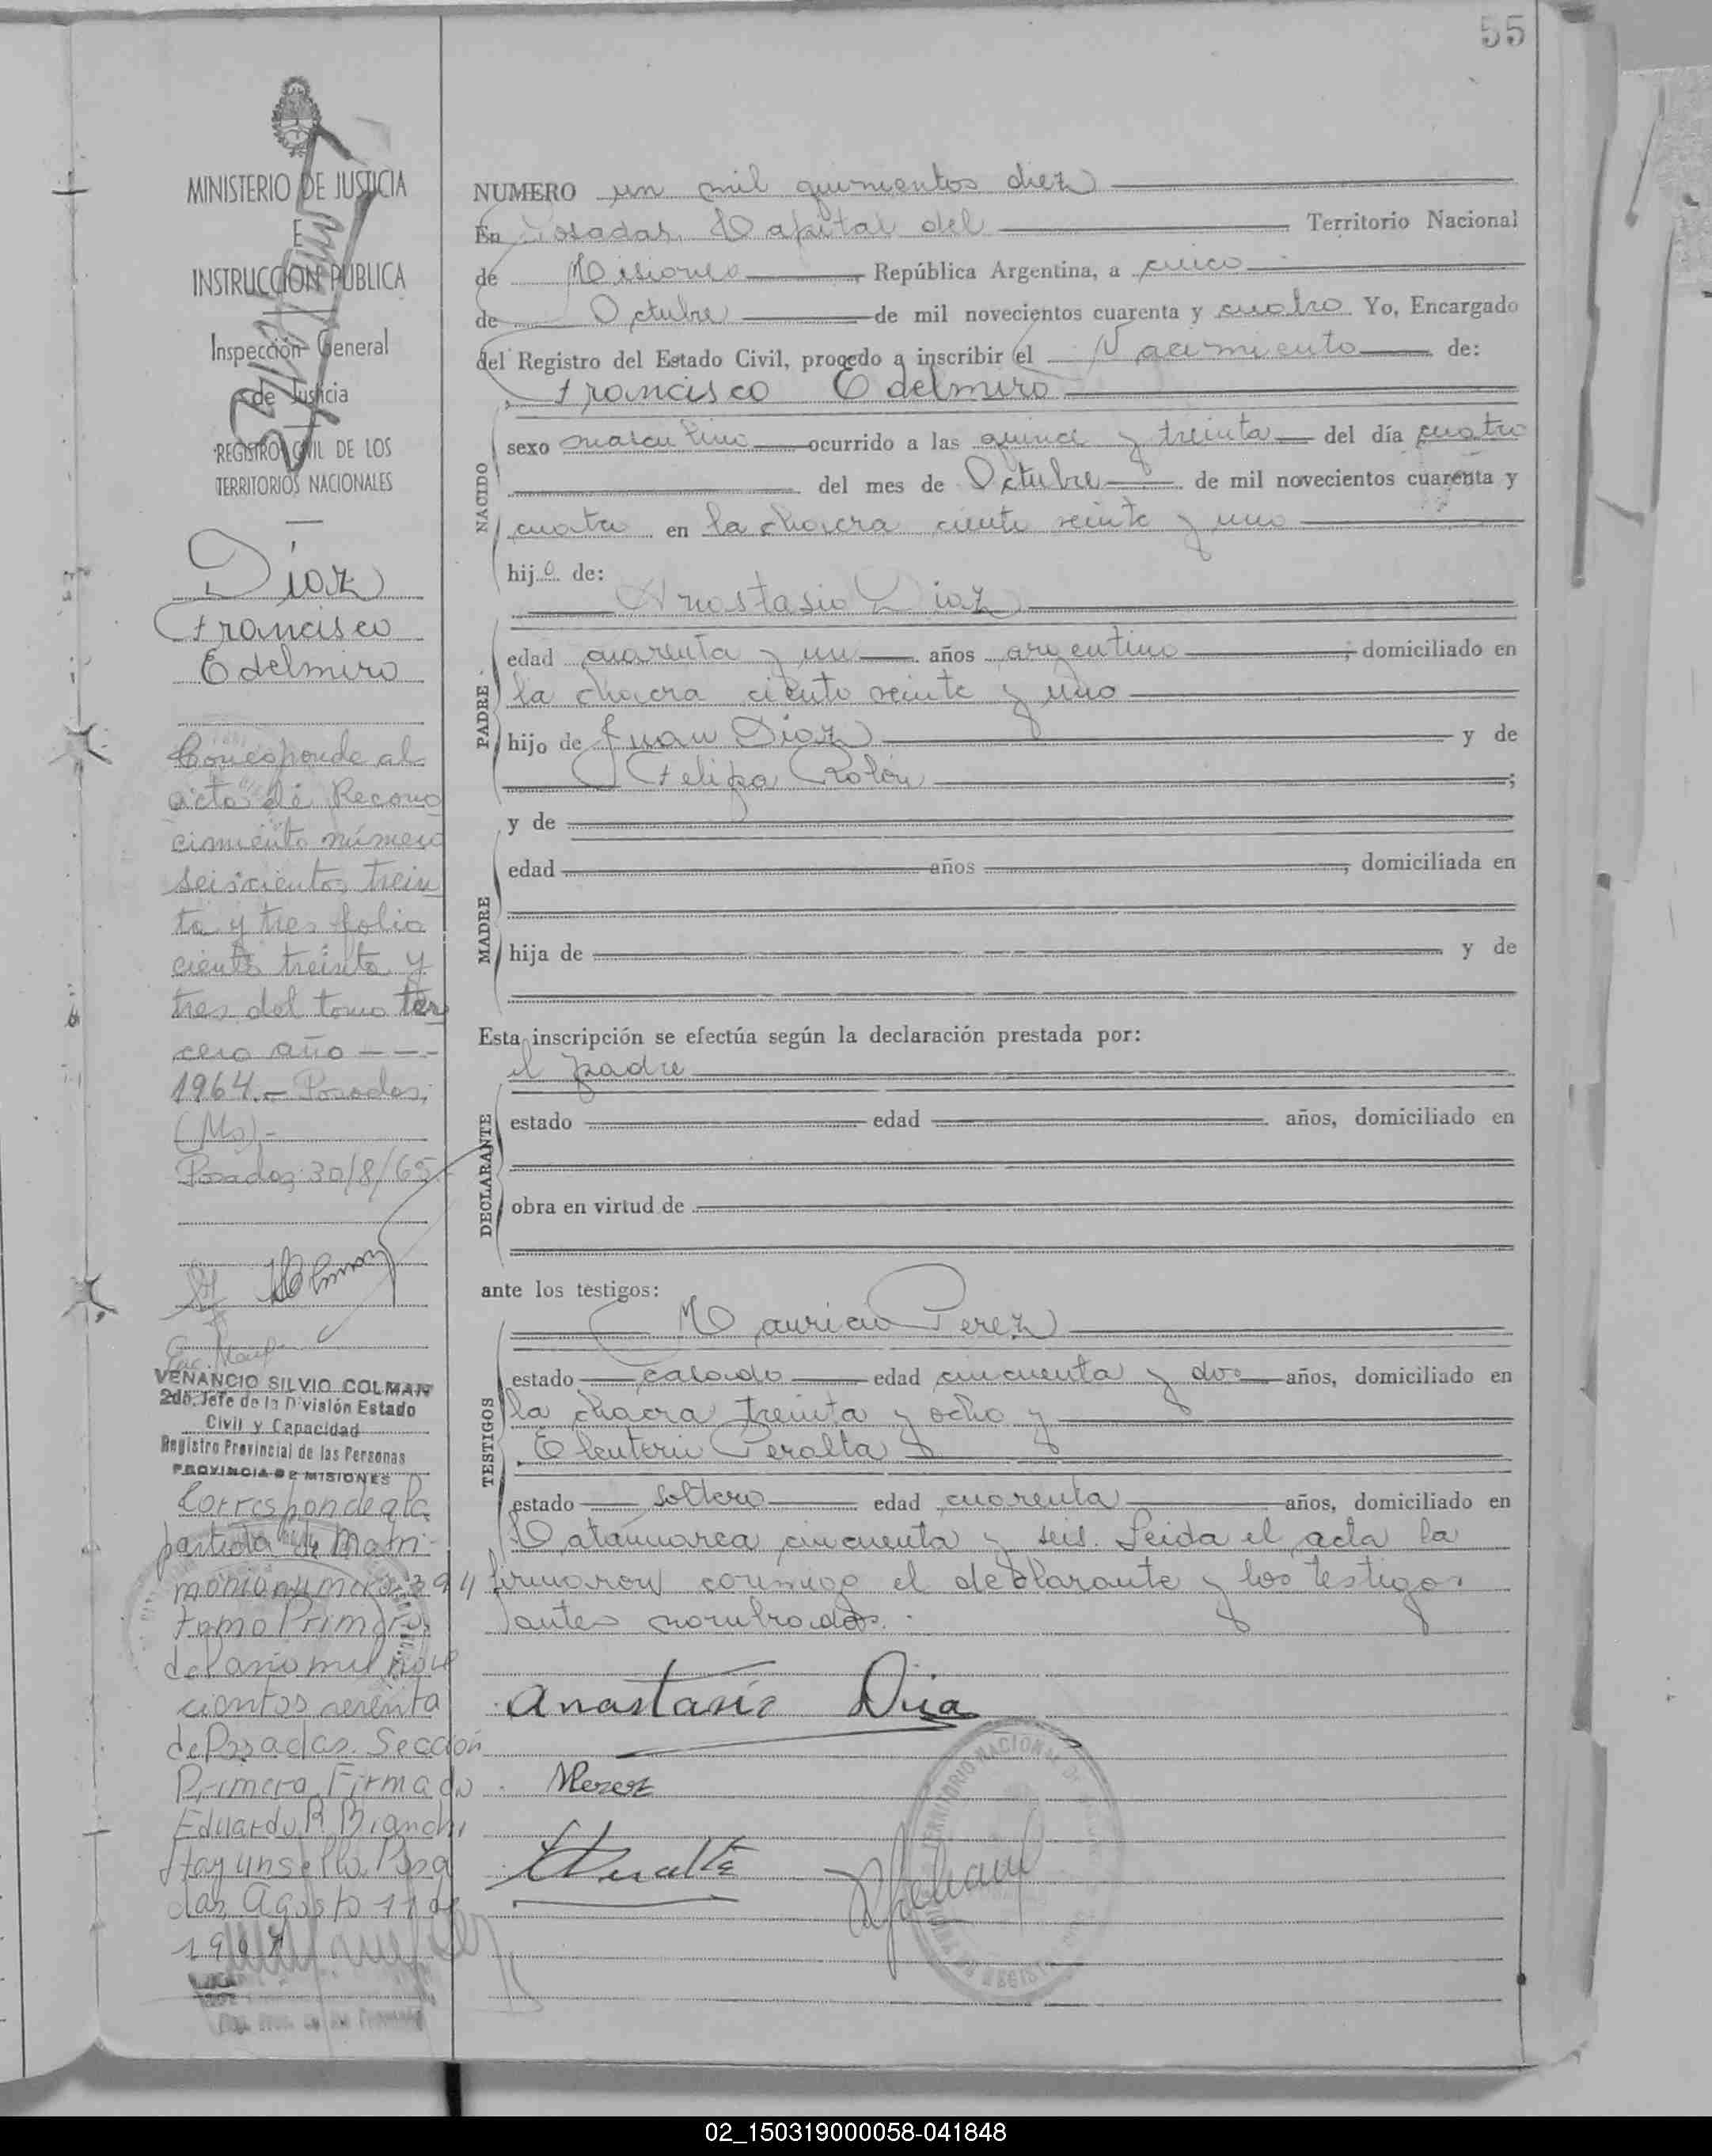 55
MINISTERIO DE JUSTICIA
E
INSTRUCCION PUBLICA
Inspección General
de Justicia
REGISTRO CIVIL DE LOS
TERRITORIOS NACIONALES
Díaz
Francisco
Edelmiro
Corresponde al
acta de Recono
cimiento número
seiscientos trein
ta y tres folio
ciento treinta y
tres del tomo ter
cero año - - -
1964.- Posadas,
(Ms)-
Posadas 30/8/65
VENANCIO SILVIO COLMAN
2do. Jefe de la División Estado
Civil y Capacidad
Registro Provincial de las Personas
PROVINCIA DE MISIONES
Corresponde a la
partida de Matri-
monio numero 394
tomo Primero
del año mil nove
cientos
de Posadas. Sección
Primera Firmado
Eduardo R. Bianchi
Hay un sello Posa
das Agosto 11 de
NUMERO un mil quinientos diez
En Posadas, Capital del Territorio Nacional
de Misiones, República Argentina, a cinco
de Octubre de mil novecientos cuarenta y cuatro Yo, Encargado
del Registro del Estado Civil, procedo a inscribir el Nacimiento de:
Francisco Edelmiro
NACIDO
sexo masculino ocurrido a las quince y treinta del día cuatro
del mes de Octubre de mil novecientos cuarenta y
cuatro en la chacra ciento veinte y uno
hijo de:
Anastasio Diaz
PADRE
edad cuarenta y un años argentino; domiciliado en
la chacra ciento veinte y uno
hijo de Juan Diaz y de
Felipa Rolón;
y de
MADRE
edad años, domiciliada en
hija de y de
Esta inscripción se efectúa según la declaración prestada por:
el padre
DECLARANTE
estado edad años, domiciliado en
obra en virtud de
ante los testigos:
Mauricio Perez
TESTIGOS
estado casado edad cincuenta y dos años, domiciliado en
la chacra treinta y ocho y
Eleuterio Peralta
estado soltero edad cuarenta años, domiciliado en
Catamarca cincuenta y seis. Leida el acta la
firmaron conmigo el declarante y los testigos
antes nombrados.
Anastasio Dia
Perez
EPeralta
02_150319000058-041848